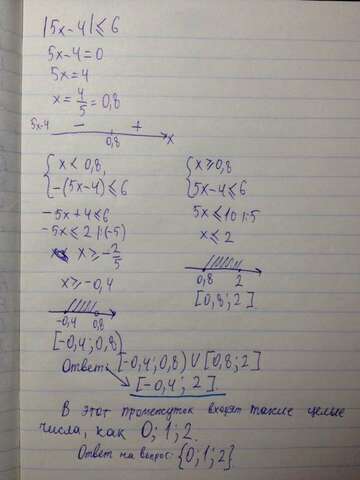 |5x-4|≤6
5x-4=0
5x=4
x=4/5=0,8
5x-4 - + x
0,8
{ x<0,8,
-(5x-4)≤6
-5x+4≤6
-5x≤2 |:(-5)
x≥-2/5
x≥-0,4
-0,4 0,8
[-0,4; 0,8)
{ x≥0,8
5x-4≤6
5x≤10 |:5
x≤2
0,8 2
[0,8; 2]
Ответ: [-0,4; 0,8) ∪ [0,8; 2]
[-0,4; 2].
В этот промежуток входят такие целые
числа, как 0; 1; 2.
Ответ на вопрос: {0; 1; 2}.